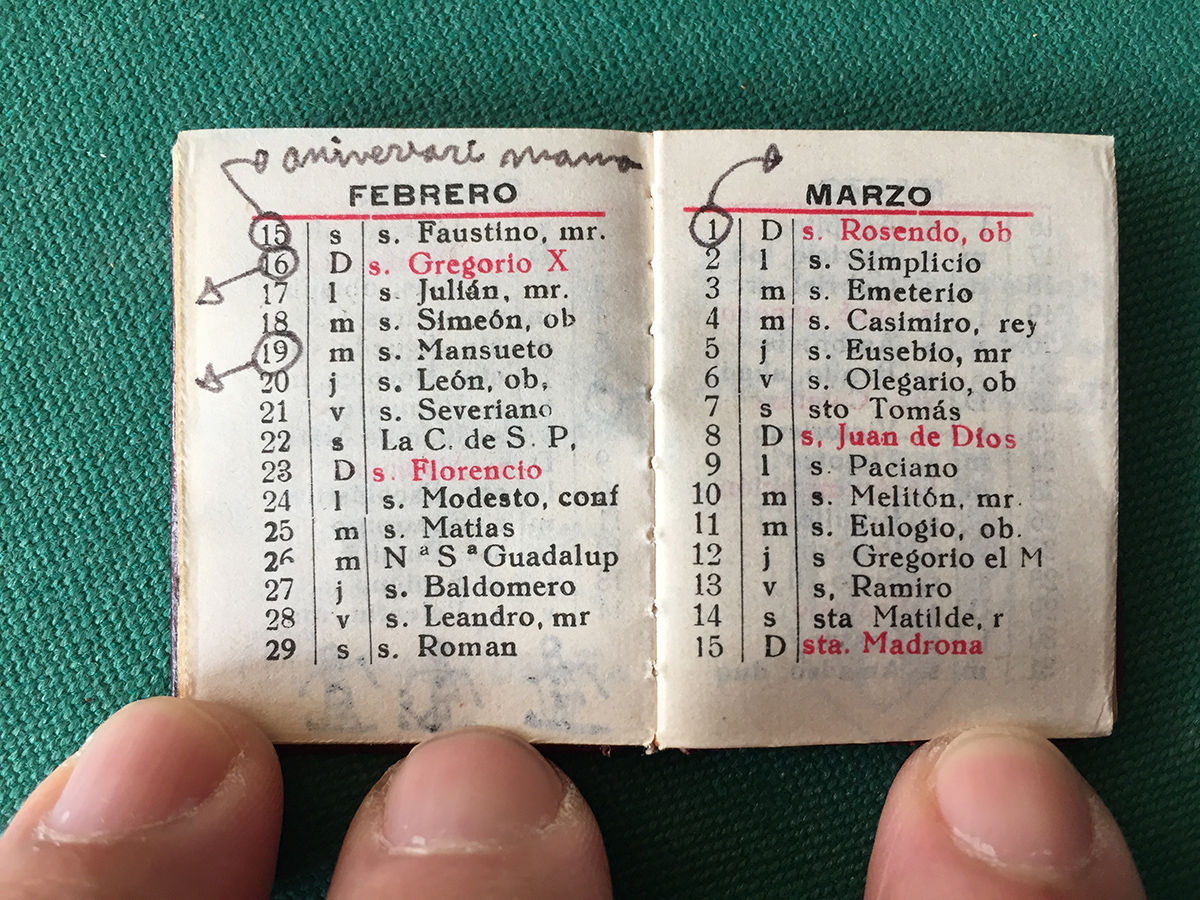 aniversari mama
FEBRERO
15 s s. Faustino, mr.
16 D s. Gregorio X
17 l s. Julián, mr.
18 m s. Simeón, ob
19 m s. Mansueto
20 j s. León, ob,
21 v s. Severiano
22 s La C. de S. P,
23 D s. Florencio
24 l s. Modesto, conf
25 m s. Matias
26 m N ª S ª Guadalup
27 j s. Baldomero
28 v s. Leandro, mr
29 s s. Roman
MARZO
1 D s. Rosendo, ob
2 l s. Simplicio
3 m s. Emeterio
4 m s. Casimiro, rey
5 j s. Eusebio, mr
6 v s. Olegario, ob
7 s sto Tomás
8 D s, Juan de Dios
9 l s. Paciano
10 m s. Melitón, mr.
11 m s. Eulogio, ob.
12 j s Gregorio el M
13 v s, Ramiro
14 s sta Matilde, r
15 D sta. Madrona